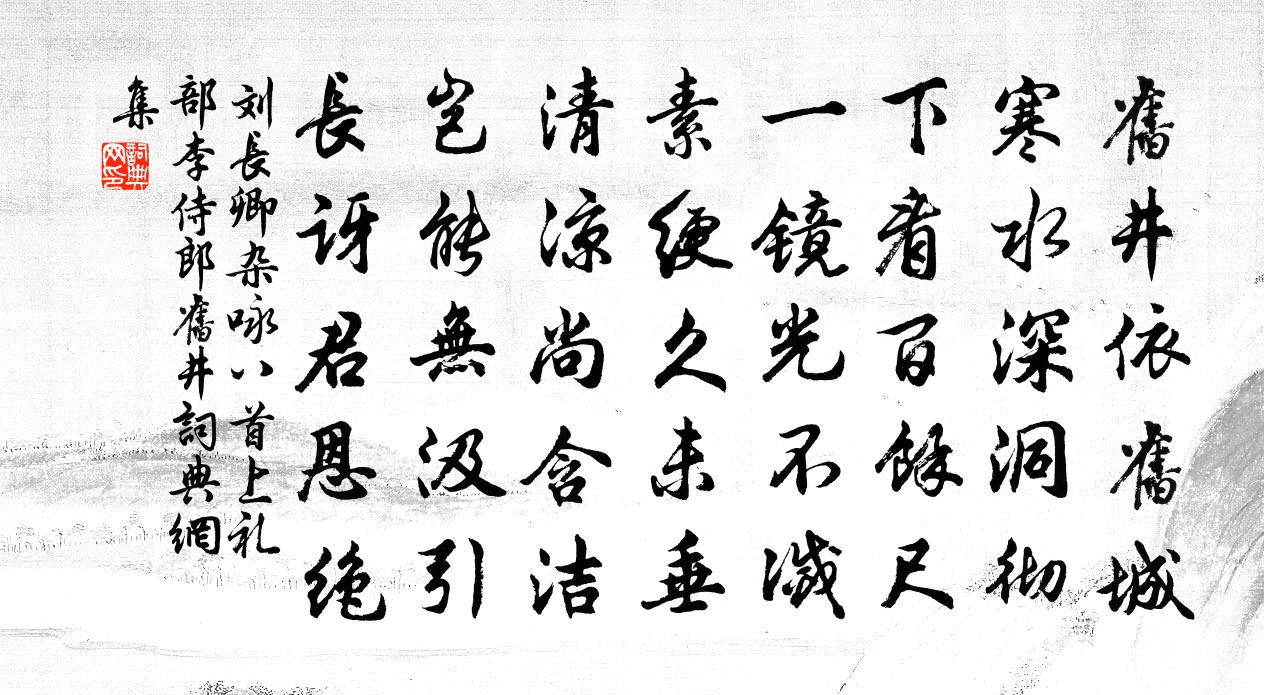 舊井依舊城
寒水深洞彻
下看百餘尺
一镜光不滅
素綆久未垂
清凉尚含洁
岂能無汲引
長讶君恩绝
刘長卿杂咏八首上礼
部李侍郎舊井詞典網
集
詞典
网印